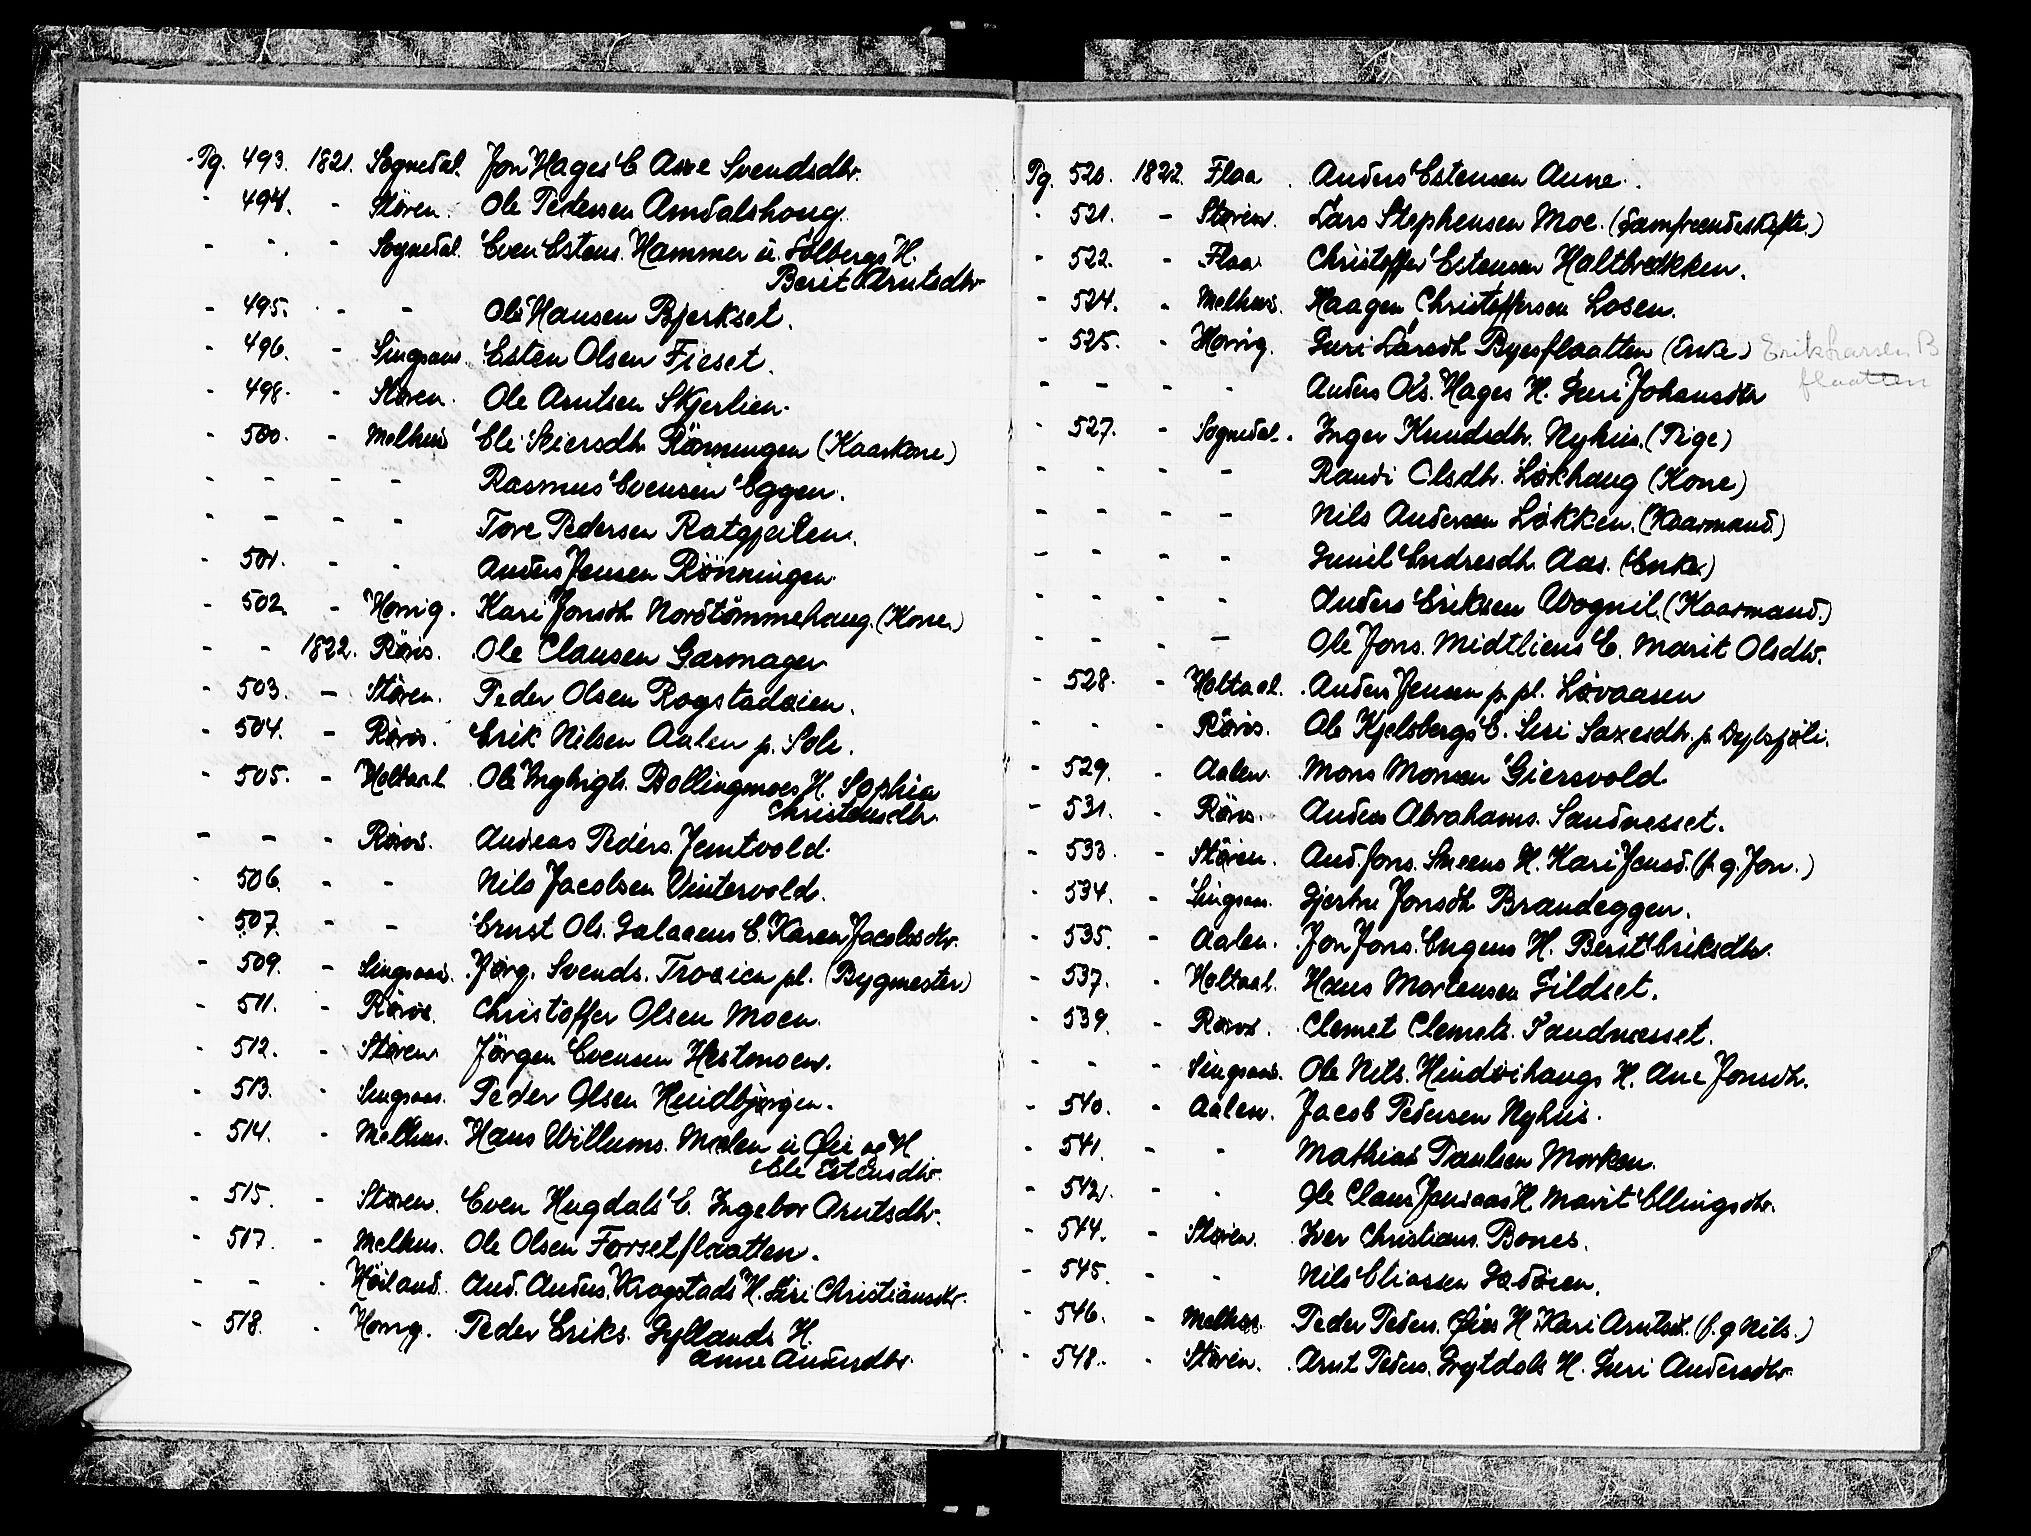 Pg. 493. 1821. Sognedal. Jon Hages E. Ane Svendsdtr.
- 494. - Støren. Ole Pedersen Amdalshoug.
- - . - Sognedal. Even Estens. Hammer u. Solbergs H.
Berit Arntsdtr
- 495. - - Ole Hansen Bjerkset.
- 496. - Singsaas. Esten Olsen Fieset.
- 498. - Støren. Ole Arntsen Skjerlien.
- 500. - Melhus Eli Siversdtr Rønningen (Kaarkone)
- - - - Rasmus Evensen Eggen.
- - - - Tore Pedersen Ratgjølen.
- 501. - - Anders Jensen Rønningen.
- 502. - Horrig. Kari Jonsdtr Nordtømmehaug. (Kone.)
- - 1822. Røros. Ole Clausen Garmager
- 503. - Støren. Peder Olsen Rogstadøien.
- 504. - Røros. Erik Nilsen Aalen p. Sole.
- 505. - Holtaal. Ole Ingbrigts. Bollingmoes H. Sophia
Christensdtr.
- - - Røros. Andreas Peders. Jemtvold.
- 506. - - Nils Jacobsen Vintervold.
- 507. - - Ernst Ols. Galaaens E. Karen Jacobsdtr.
- 509. - Singsaas. Jørg. Svends. Troøien pl. (Bygmester)
- 511. - Røros. Christoffer Olsen Moen.
- 512. - Støren Jørgen Evensen Hestmoen.
- 513. - Singsaas. Peder Olsen Kuidbjørgen.
- 514. - Melhus. Hans Willums. Mælen u. Øie og H
Eli Estensdtr.
- 515. - Støren. Even Hugdals E. Ingebor Arntsdtr.
- 517. - Melhus. Ole Olsen Forsetflaatten.
- - - Høiland. And. Anders. Krogstads H. Siri Christiansdtr.
- 518. - Horrig. Peder Eriks. Gyllands H.
Anne Andersdtr.
Pg. 520. 1822. Flaa. Anders Estensen Aune.
- 521. - Støren. Lars Stephensen Moe. (Samfrændeskifte.)
- 522. - Flaa. Christoffer Estensen Haltbrekken.
- 524. - Melhus. Haagen Christoffersen Losen.
- 525. - Horrig. Guri Larsdtr Byesflaatten (Enke.) Erik Larsen B
flaatten
- - - - Anders Ols. Hages H. Guri Johansdtr
- 527. - Sognedal. Inger Knudsdtr. Nyhus. (Pige)
- - - - Randi Olsdtr. Løkhaug (Kone)
- - - - Nils Andersen Løkken. (Kaarmand.)
- - - - Gunil Endresdtr. Aas. (Enke.)
- - - - Anders Eriksen Wognil. (Kaarmand.)
- - - - Ole Jons. Midtliens E. Marit Olsdtr.
- 528. - Holtaal. Anders Jensen p. pl. Løvaasen
- - - Røros. Ole Kjelsbergs E. Siri Saxesdtr. p.
- 529. - Aalen. Mons Monsen Giersvold
- 531. - Røros. Anders Abrahams. Sandnesset.
- 533. - Støren. And. Jons. Sneens H. Kari Jensd. (f. g. Jon.)
- 534. - Singsaas. Gjertru Jonsdtr Brandeggen.
- 535. - Aalen. Jon Jons. Engens H. Berit Eriksdtr.
- 537. - Holtaal. Hans Mortensen Gildset.
- 539. - Røros. Clemet Clemets. Sandnæsset.
- - - Singsaas. Ole Nils. Hindøihaugs H. Ane Jonsdtr.
- 540. - Aalen. Jacob Pedersen Nyhus.
- 541. - - Mathias Paulsen Morken.
- 542. - - Ole Claus. Jensaas H. Marit Ellingsdtr.
- 544. - Støren. Iver Christians. Bones.
- 545. - - Nils Eliassen Ledøien.
- 546. - Melhus. Peder Peders. Øies H. Kari Arntsd. (f. g. Nils.)
- 548. - Støren. Arnt Peders. Grytdals H. Guri Andersdtr.